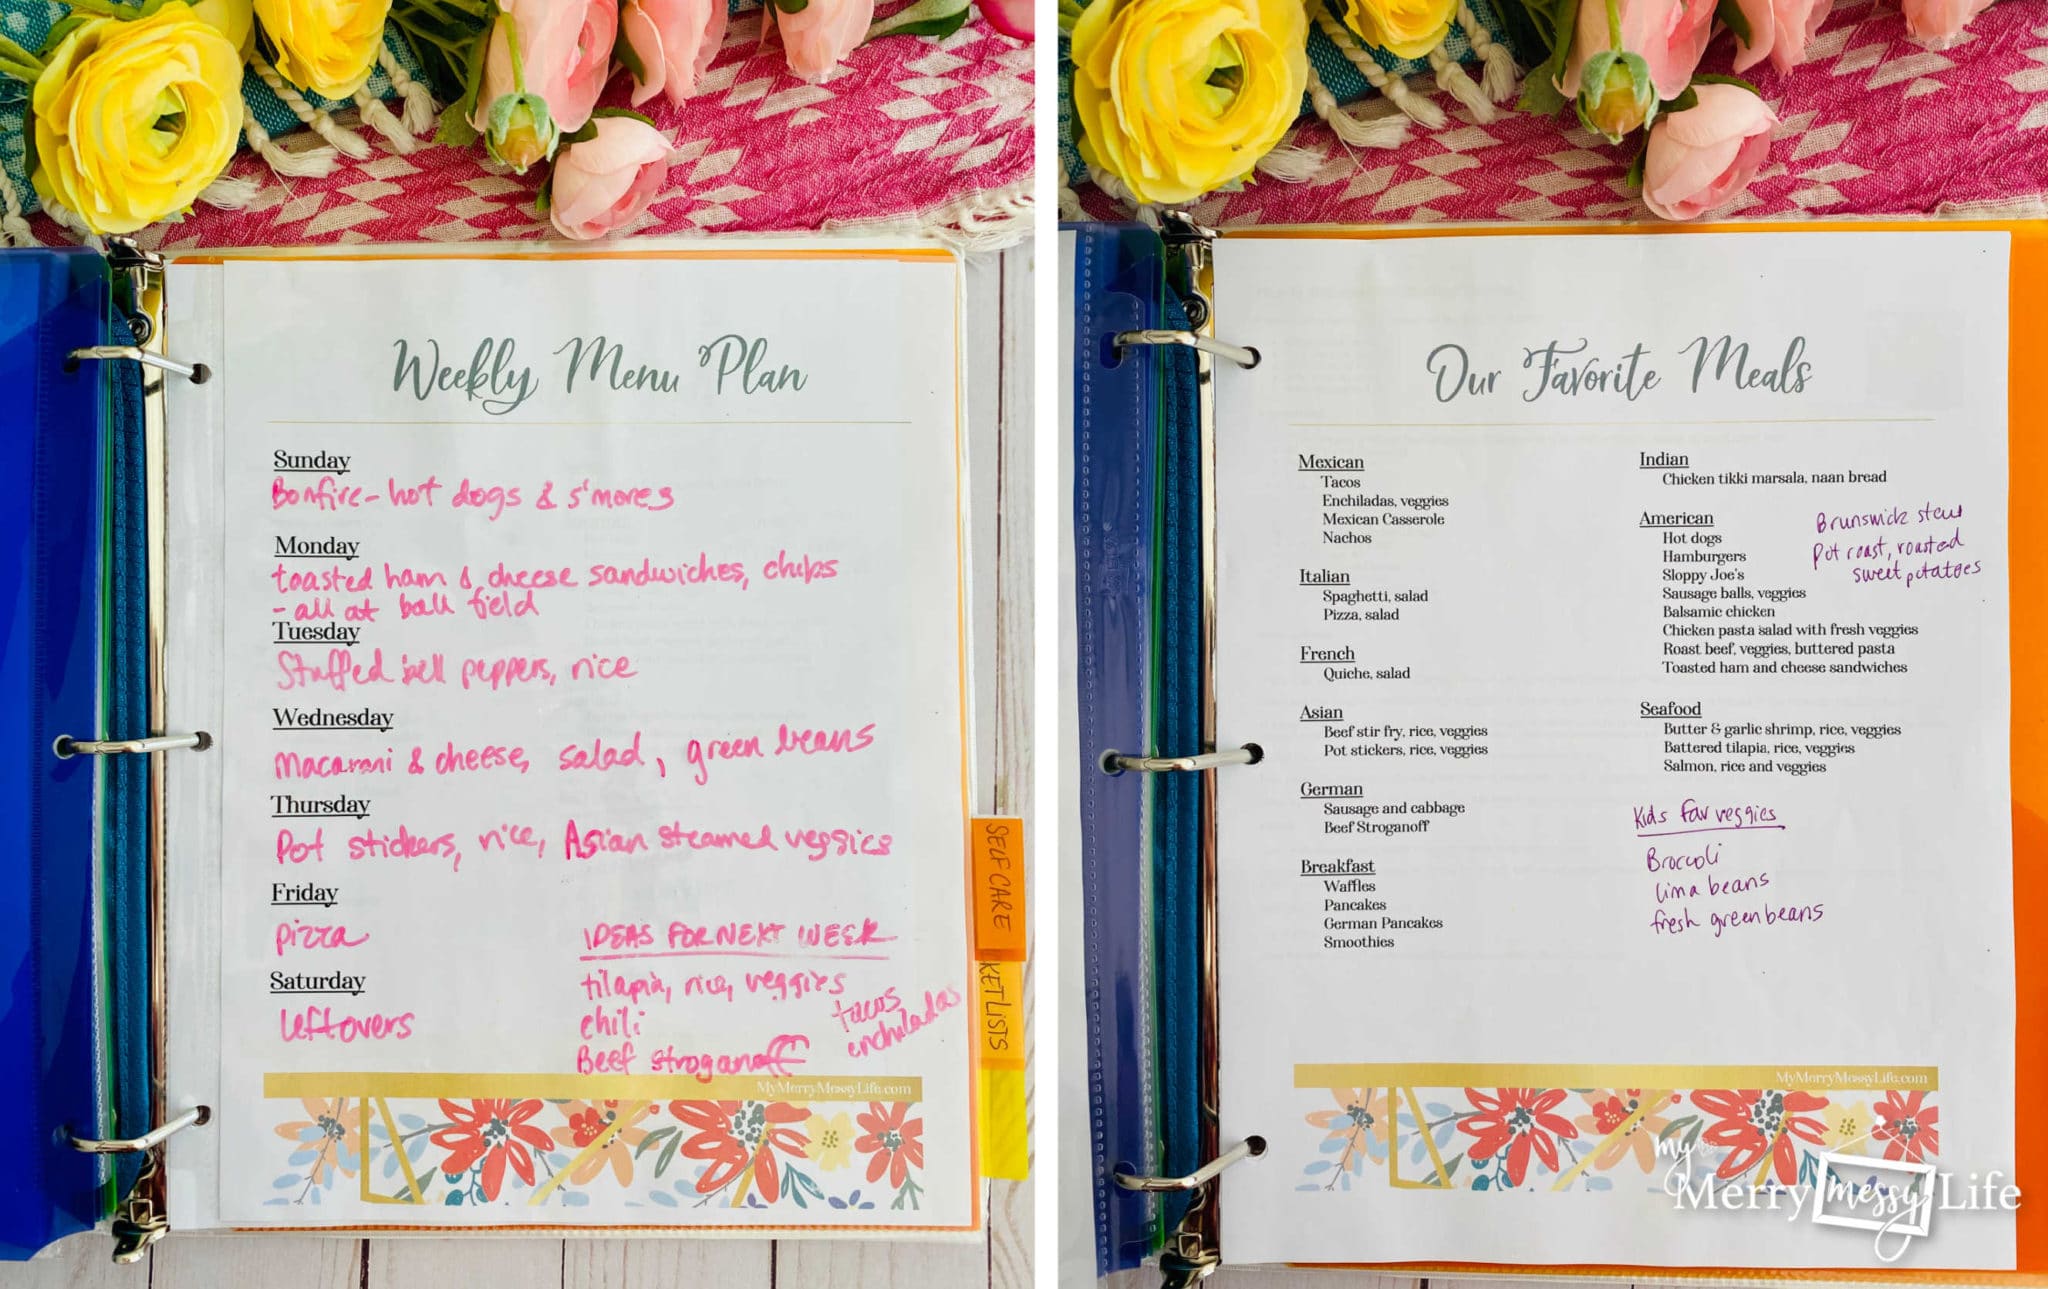 Weekly Menu Plan
Sunday
Bonfire - hot dogs & s'mores
Monday
toasted ham & cheese sandwiches, chips
- all at ball field
Tuesday
Stuffed bell peppers, rice
Wednesday
Macaroni & cheese, salad, green beans
Thursday
Pot stickers, rice, Asian steamed veggies
Friday
pizza
Saturday
leftovers
IDEAS FOR NEXT WEEK
tilapia, rice, veggies
chili
Beef stroganoff
tacos
enchiladas
MyMerryMessyLife.com
SELF CARE
KET LISTS
Our Favorite Meals
Mexican
Tacos
Enchiladas, veggies
Mexican Casserole
Nachos
Italian
Spaghetti, salad
Pizza, salad
French
Quiche, salad
Asian
Beef stir fry, rice, veggies
Pot stickers, rice, veggies
German
Sausage and cabbage
Beef Stroganoff
Breakfast
Waffles
Pancakes
German Pancakes
Smoothies
Indian
Chicken tikki marsala, naan bread
American
Hot dogs
Hamburgers
Sloppy Joe's
Sausage balls, veggies
Balsamic chicken
Chicken pasta salad with fresh veggies
Roast beef, veggies, buttered pasta
Toasted ham and cheese sandwiches
Brunswick stew
Pot roast, roasted
sweet potatoes
Seafood
Butter & garlic shrimp, rice, veggies
Battered tilapia, rice, veggies
Salmon, rice and veggies
Kids fav veggies
Broccoli
lima beans
fresh green beans
MyMerryMessyLife.com
my
Merry messy Life